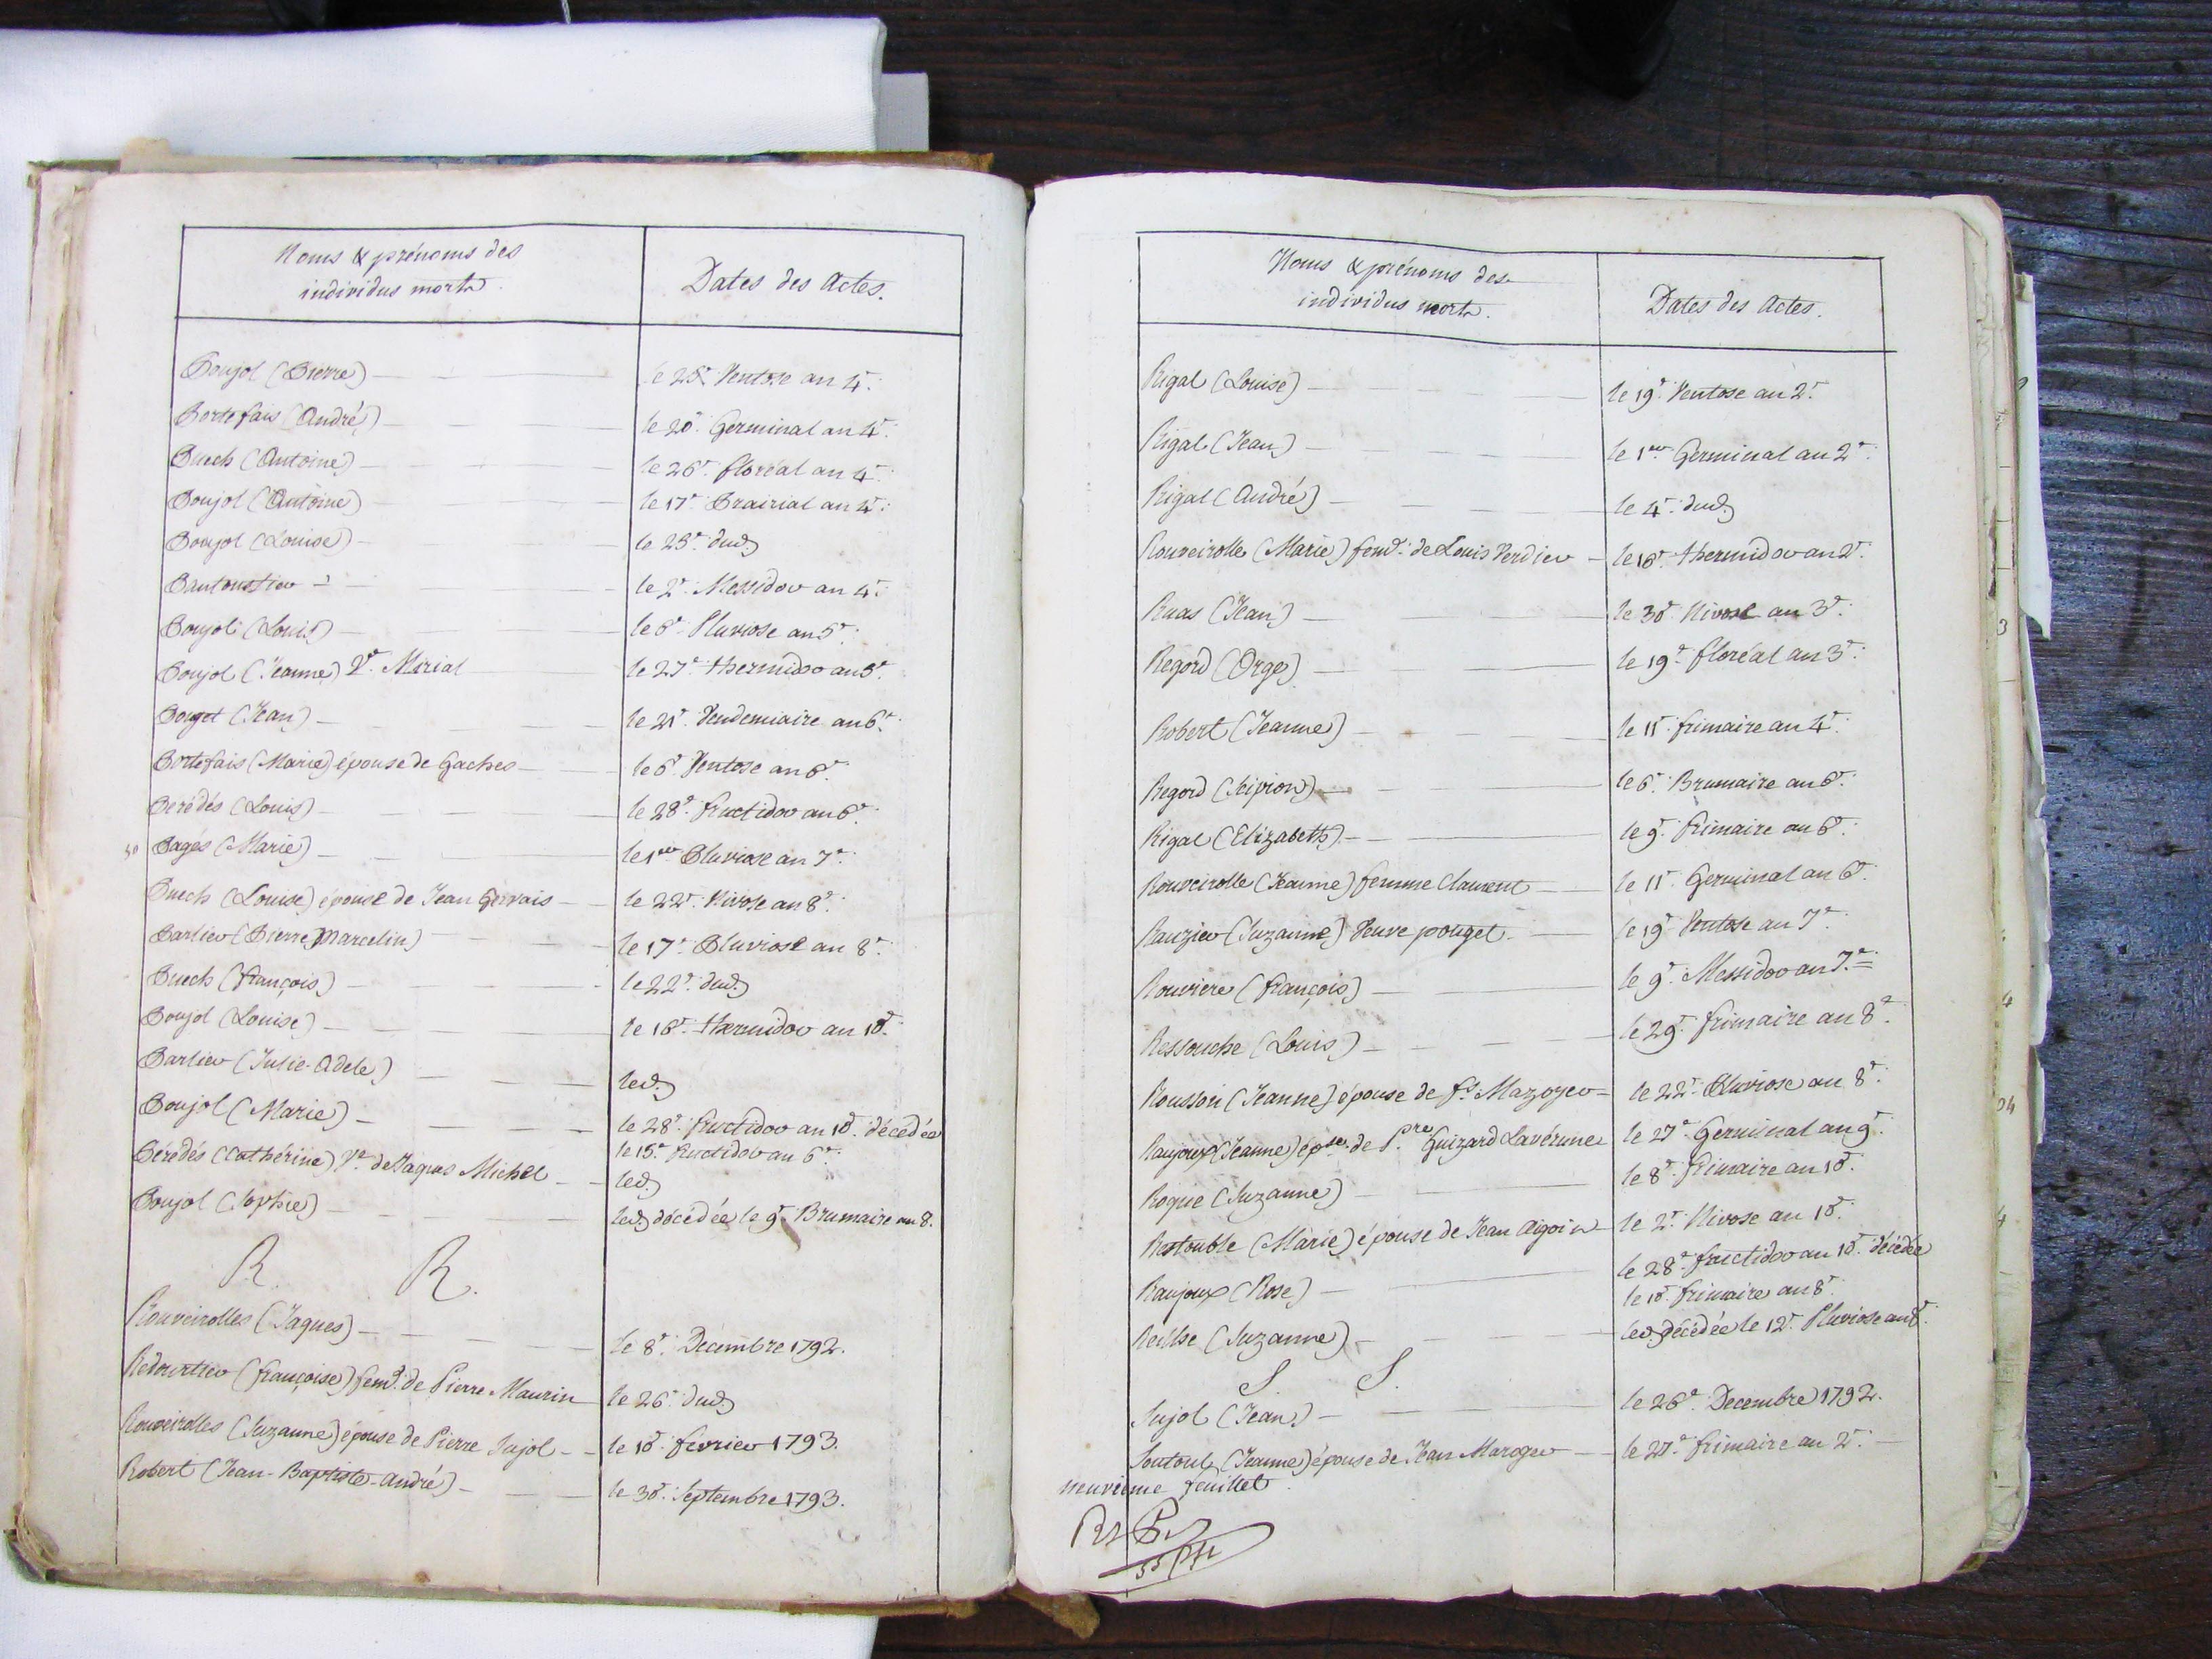 Noms & prénoms des
individus morts.
Dates des Actes.
Poujol (Pierre) le 25e Ventose an 4e.
Portefais (André) le 20e Germinal an 4e.
Puech (Antoine) le 26e floréal an 4e.
Poujol (Antoine) le 17e Prairial an 4e.
Poujol (Louise) le 25e dud.
Pantoustier le 2e Messidor an 4e.
Poujol (Louis) le 8e Pluviose an 5e.
Poujol (Jeanne) Ve. Mirial le 27e thermidor an 5e.
Pouget (Jean) le 21e Vendemiaire an 6e.
Portefais (Marie) épouse de Gaches le 6e Ventose an 6e.
Perédés (Louis) le 28e fructidor an 6e.
Pagés (Marie) le 1er Pluviose an 7e.
Puech (Louise) épouse de Jean Gervais le 22e Nivose an 8e.
Parlier (Pierre Marcelin) le 17e Pluviose an 8e.
Puech (françois) le 22e dud.
Poujol (Louise) le 16e thermidor an 10e.
Parlier (Julie-Adele) led.
Poujol (Marie) le 28e fructidor an 10e. décédée
le 15e fructidor an 6e.
Pérédés (Cathérine) Ve. de Jaques Michel led.
Poujol (Sophie) led. décédée le 9e Brumaire an 8.
R. R.
Rouveirolles (Jaques) le 8e Décembre 1792.
Redourtier (françoise) feme. de Pierre Maurin le 26e dud.
Rouveirolles (Suzanne) épouse de Pierre Sujol le 10e fevrier 1793.
Robert (Jean-Baptiste-André) le 30e Septembre 1793.
Noms & prénoms des
individus morts.
Dates des Actes.
Rigal (Louise) le 19e Ventose an 2e.
Rigal (Jean) le 1er Germinal an 2e.
Rigal (André) le 4e dud.
Rouveirolle (Marie) feme. de Louis Verdier le 16e thermidor an 2e.
Ruas (Jean) le 30e Nivose an 3e.
Regord (Orge) le 19e floréal an 3e.
Robert (Jeanne) le 11e frimaire an 4e.
Regord (Scipion) le 6e Brumaire an 6e.
Rigal (Elizabeth) le 9e frimaire an 6e.
Rouveirolle (Jeanne) femme Claurent le 11e Germinal an 6e.
Rauzier (Suzanne) Veuve pouget le 19e Ventose an 7e.
Rouviere (françois) le 9e Messidor an 7e.
Ressouche (Louis) le 29e frimaire an 8e.
Rousson (Jeanne) épouse de fs. Mazoyer le 22e Pluviose an 8e.
Raujoux (Jeanne) épse. de Pre. Guizard Lavérune le 27e Germinal an 9e.
Roque (Suzanne) le 8e frimaire an 10e.
Restouble (Marie) épouse de Jean Aigoin le 2e Nivose an 10e.
Raujoux (Rose) le 28e fructidor an 10e. décédée
le 10e frimaire an 8e.
Reilhe (Suzanne) led. décédée le 12e Pluviose an 8e.
S. S.
Sujol (Jean) le 26e Decembre 1792.
Soutoul (Jeanne) épouse de Jean Maroger le 27e frimaire an 2e.
neuvieme feuillet